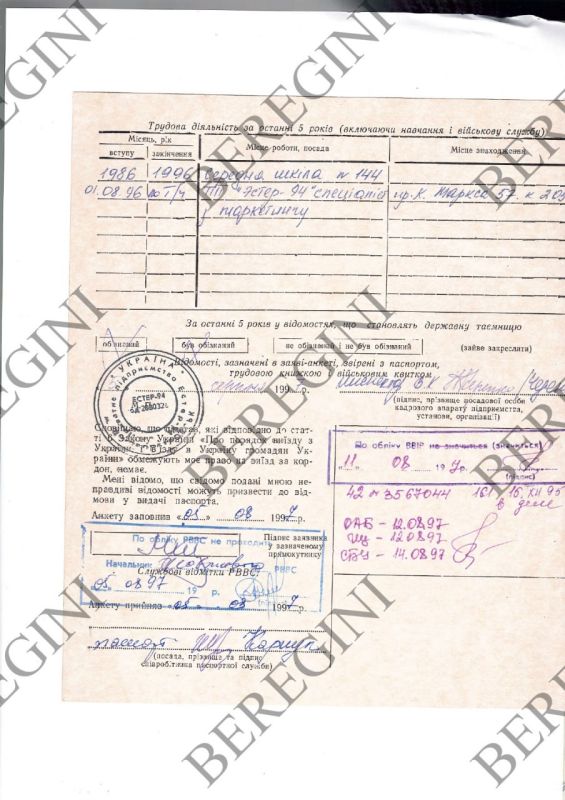 Трудова діяльність за останні 5 років (включаючи навчання і військову службу)
Місяць, рік
вступу
закінчення
Місце роботи, посада
Місце знаходження
1986 1996 середня шкіла № 144
01.08.96 по т/ч "Эстер-94" спеціаліст пр. К. Маркса 57 к 205
з маркетингу
За останні 5 років у відомостях, що становлять державну таємницю
обізнаний
був обізнаний
не обізнаний і не був обізнаний
(зайве закреслити)
Відомості, зазначені в заяві-анкеті, звірені з паспортом,
трудовою книжкою й військовим квитком
199
(підпис, прізвище посадової особи
кадрового апарату підприємства,
установи, організації)
УКРАЇНА
ЕСТЕР-94
Сповіщаю, що підстав, які відповідно до стат-
ті 6 Закону України «Про порядок виїзду з
України і в'їзду в Україну громадян Ук-
раїни» обмежують моє право на виїзд за кор-
дон, немає.
Мені відомо, що свідомо подані мною не-
правдиві відомості можуть призвести до від-
мови у видачі паспорта.
Анкету заповнив «05» 08 1997
По обліку ВВІР не значиться (значиться)
11 08 197 р.
(підпис)
42 № 3567044 161 15.XII 95
в деле
ОАБ - 12.08.97
ИЦ - 12.08.97
СБУ - 14.08.97
По обліку РВВС не проходить
Начальник РВВС
05 08 97 19 р.
Підпис заявника
у зазначеному
прямокутнику
Службові відмітки РВВС:
Анкету прийняв «05» 08 1997
паспорт
(посада, прізвище та підпис
співробітника паспортної служби)
BEREGINI